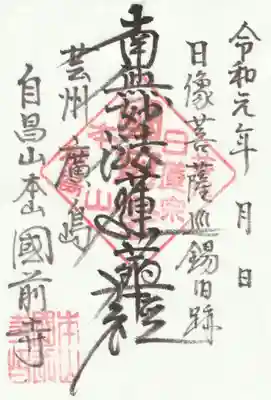 令和元年 月 日
日像菩薩巡錫旧跡
南無妙法蓮華経
芸州 廣島
自昌山本山國前寺